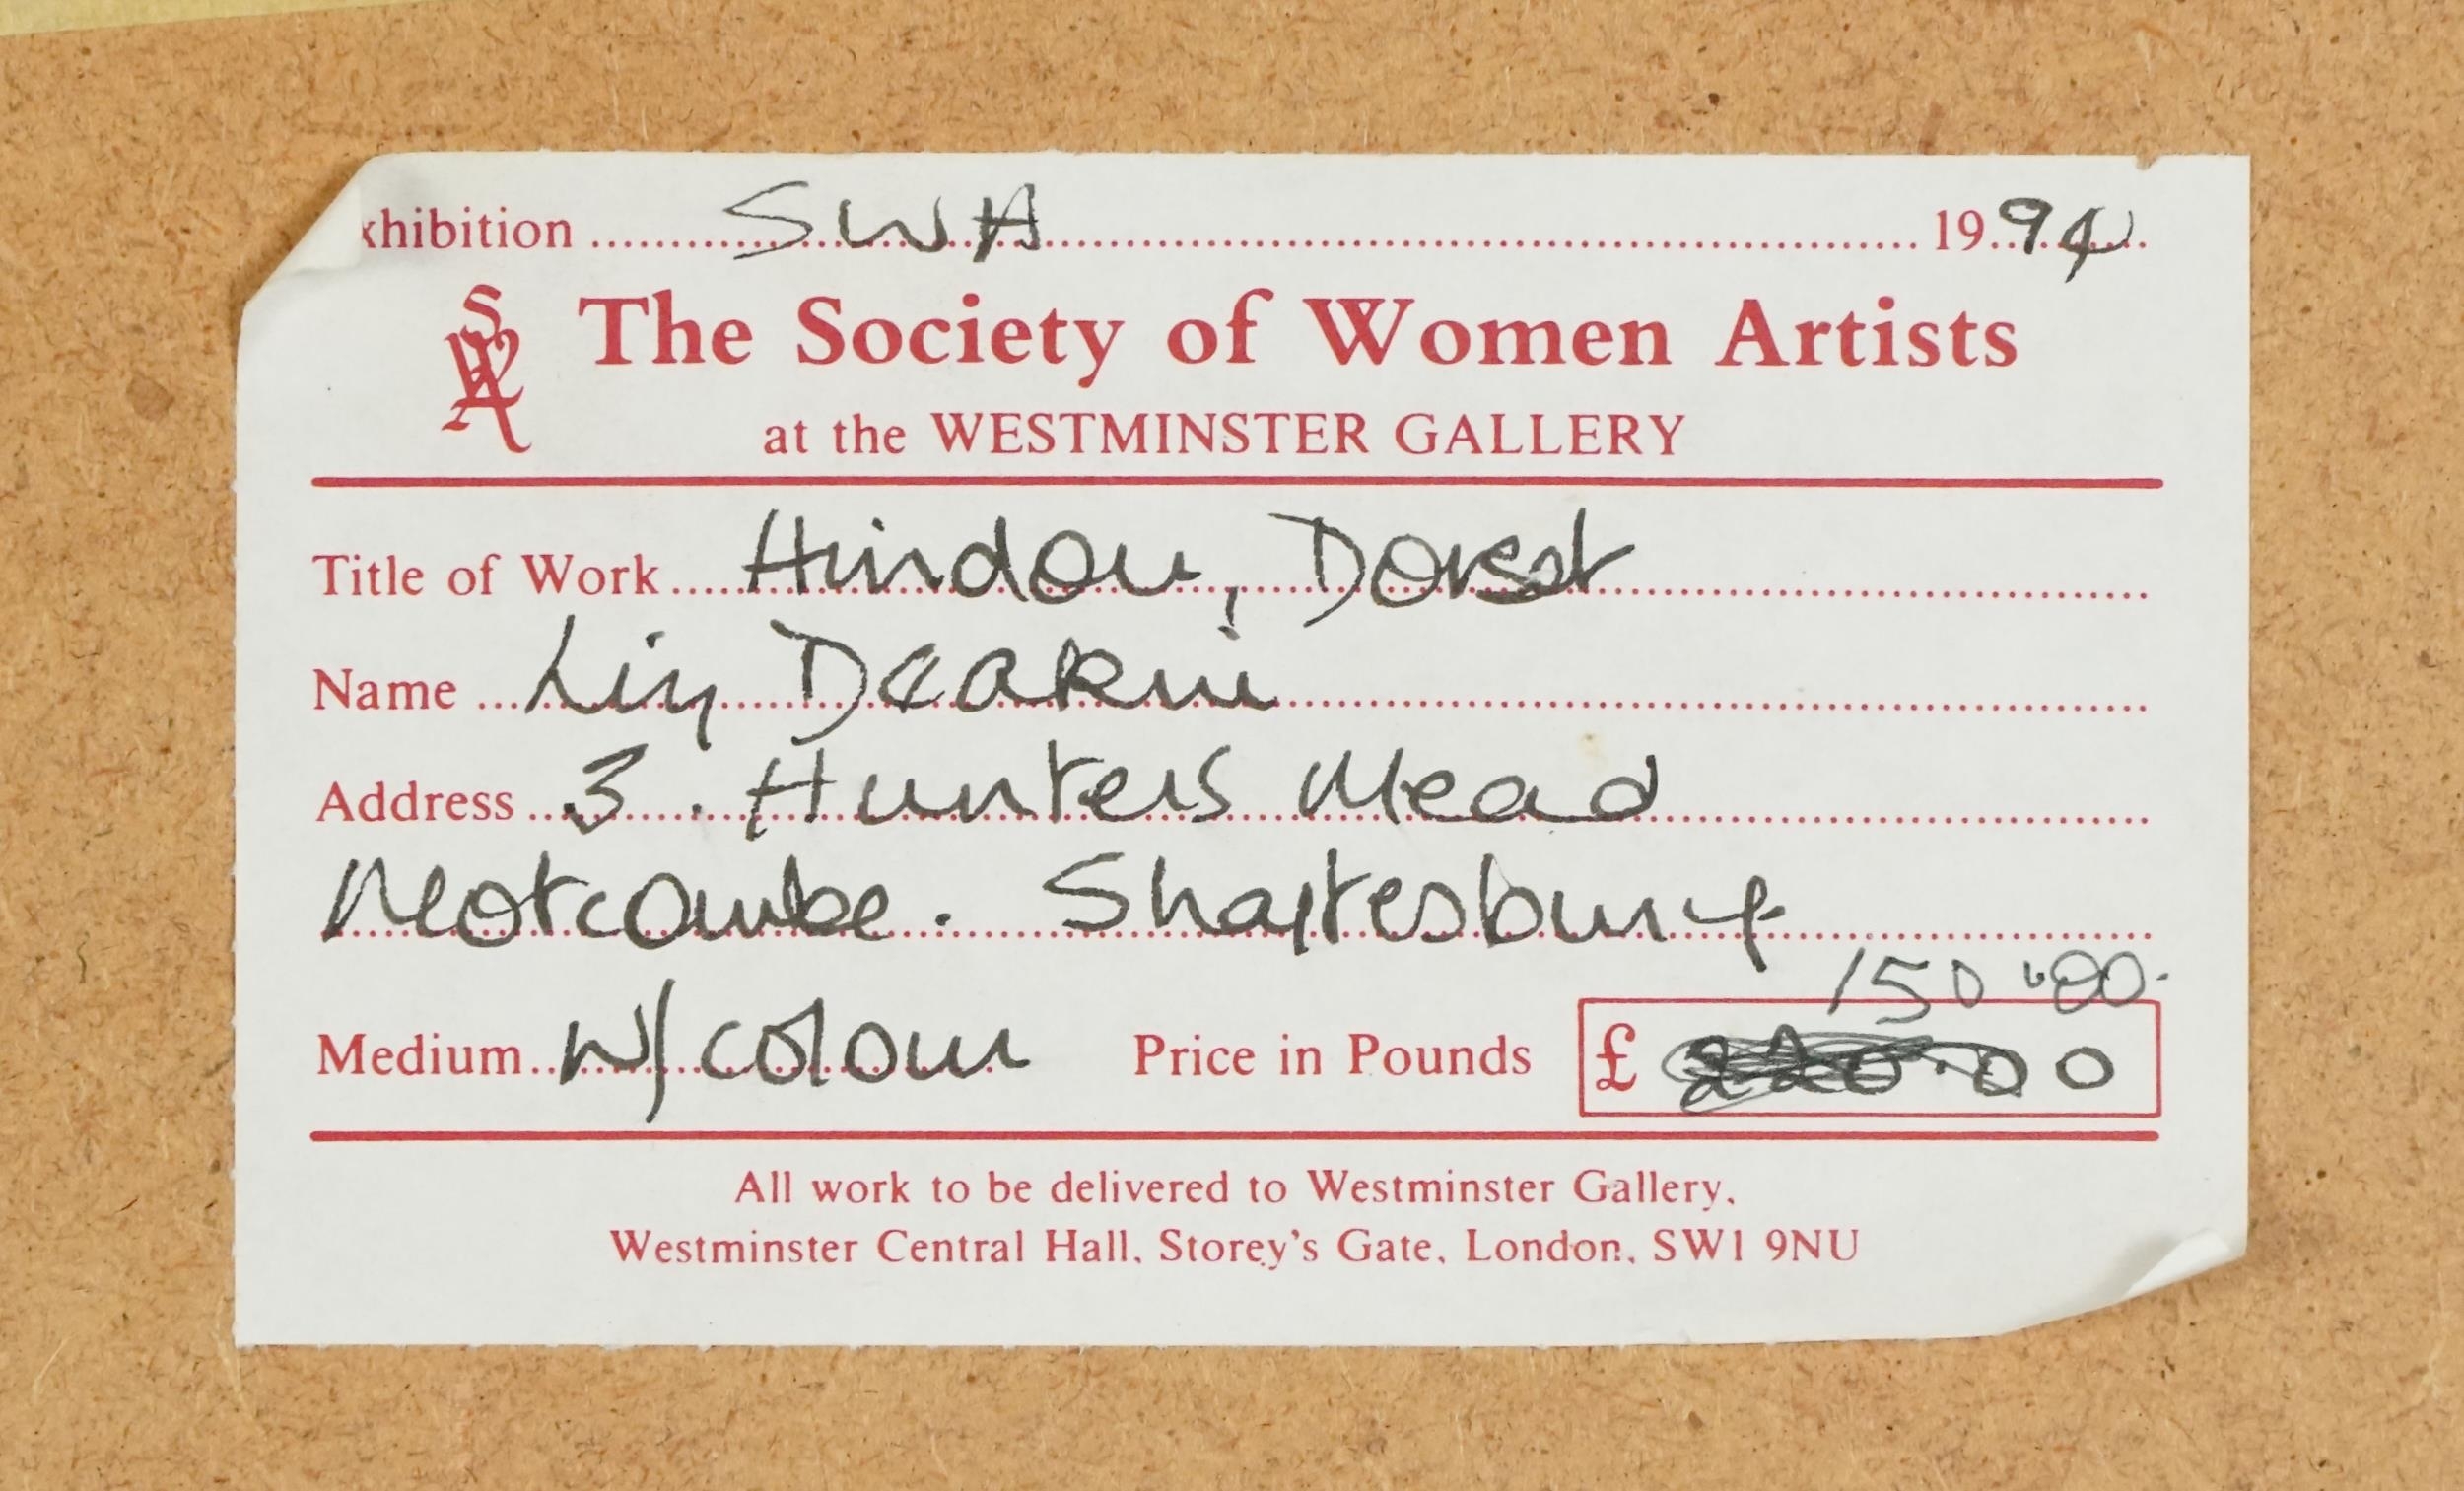 xhibition SWA 1994
SWA The Society of Women Artists
at the WESTMINSTER GALLERY
Title of Work Hindon, Dorset
Name Liz Deakin
Address 3. Hunters Mead
Motcombe. Shaftesbury
150.00.
Medium W/colour Price in Pounds £ .00
All work to be delivered to Westminster Gallery,
Westminster Central Hall, Storey's Gate, London, SW1 9NU